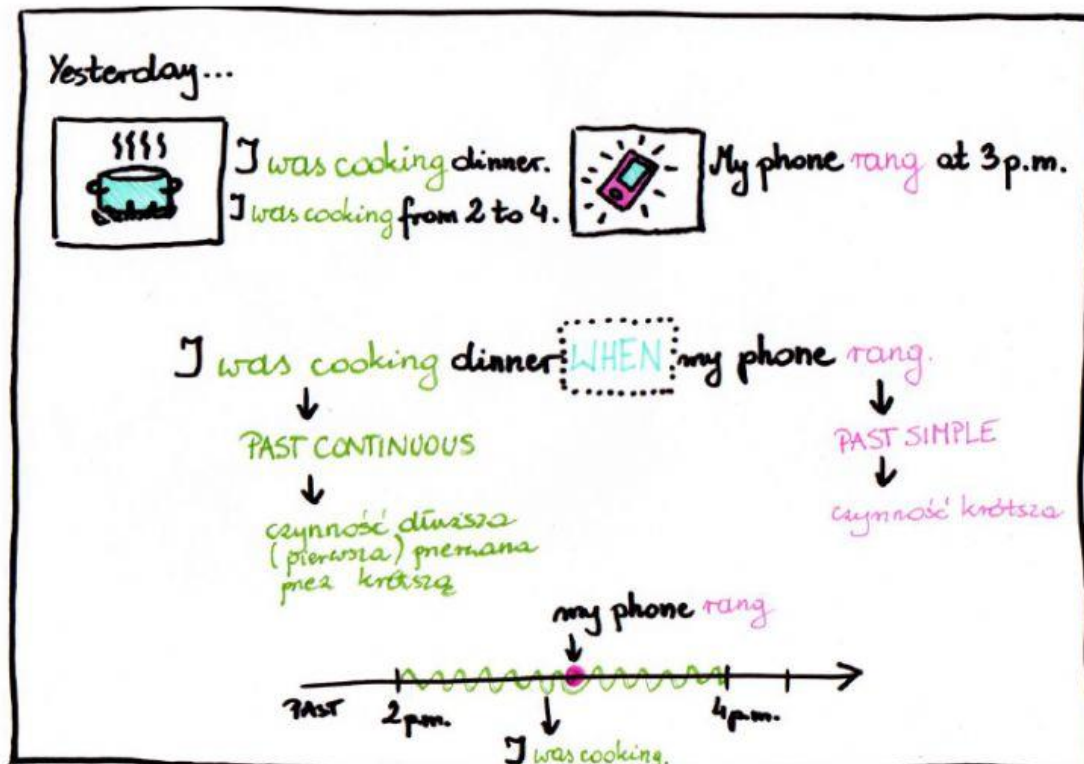 Yesterday...
I was cooking dinner.
I was cooking from 2 to 4.
My phone rang at 3 p.m.
I was cooking dinner WHEN my phone rang.
PAST CONTINUOUS
PAST SIMPLE
czynność dłuższa
(pierwsza) przerwana
przez krótszą
czynność krótsza
my phone rang
PAST
2 p.m.
4 p.m.
I was cooking.